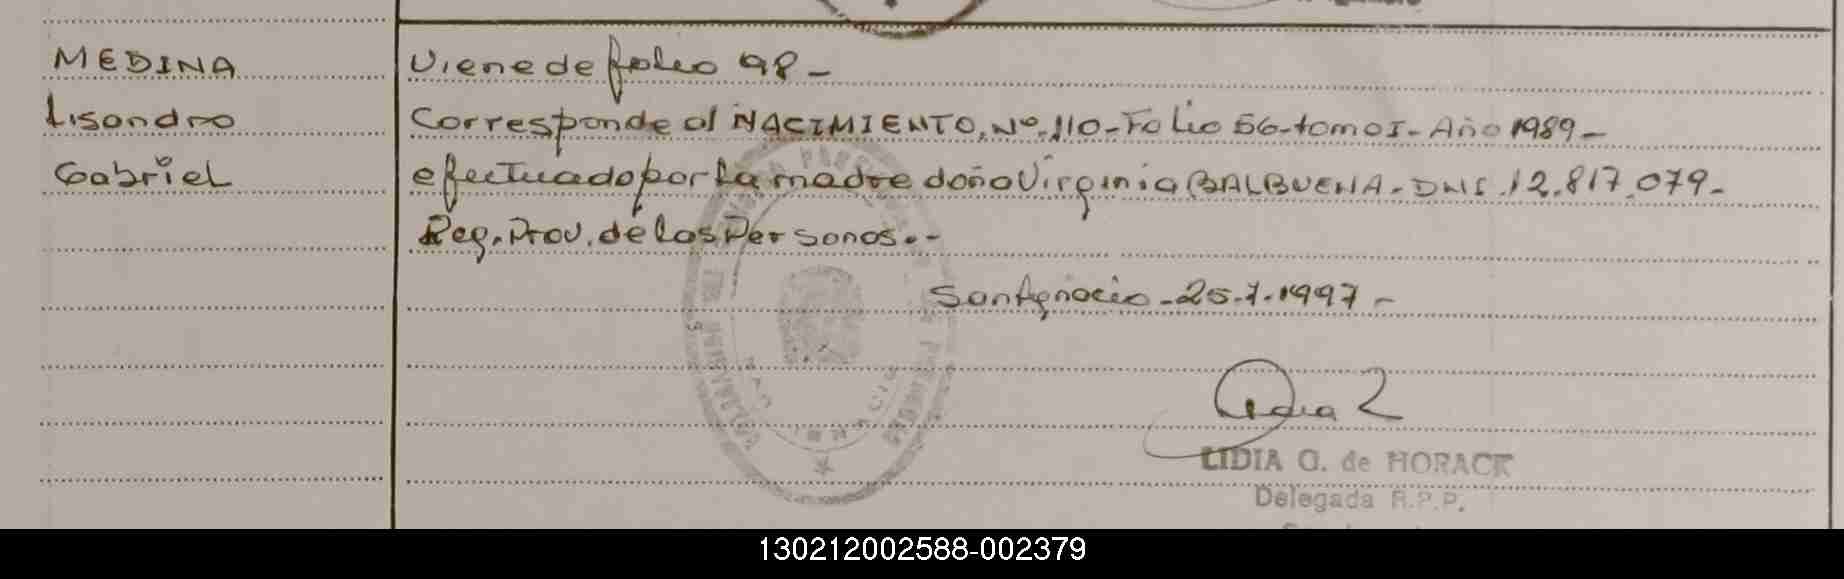 MEDINA
Lisandro
Gabriel
Viene de folio 98-
Corresponde al NACIMIENTO, Nº 110-Folio 56-tomo I-Año 1989-
efectuado por La madre doña Virginia BALBUENA-DNI 12.817.079-
Reg. Prov. de las Personas.-
San Ignacio-25-7-1997-
LIDIA G. de HORACK
Delegada R.P.P.
130212002588-002379